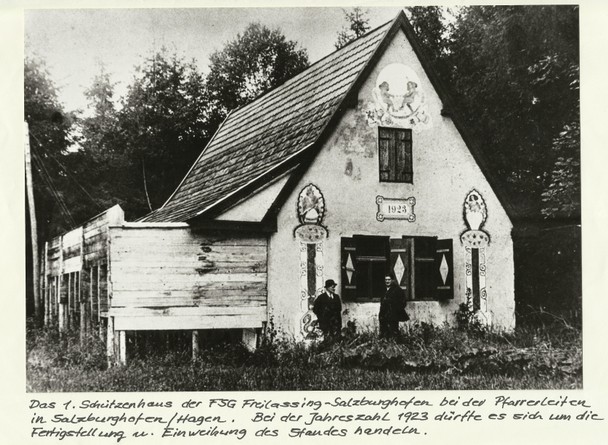 1923
Das 1. Schützenhaus der FSG Freilassing-Salzburghofen bei der Pfarrerleiten
in Salzburghofen/Hagen. Bei der Jahreszahl 1923 dürfte es sich um die
Fertigstellung u. Einweihung des Standes handeln.